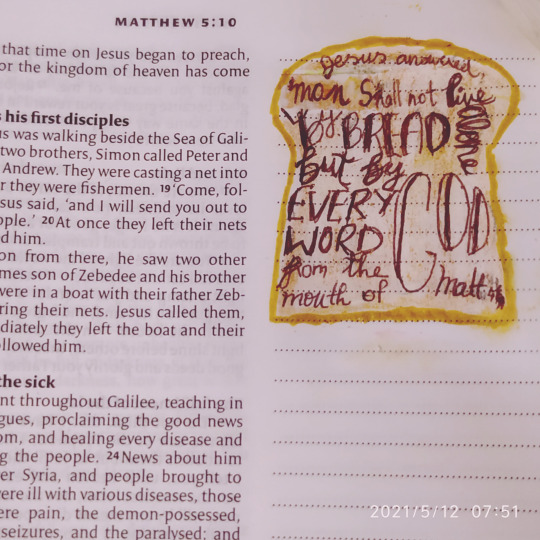 MATTHEW 5:10
that time on Jesus began to preach,
or the kingdom of heaven has come
his first disciples
us was walking beside the Sea of Gali-
two brothers, Simon called Peter and
Andrew. They were casting a net into
r they were fishermen. 19 'Come, fol-
sus said, 'and I will send you out to
ople.' 20 At once they left their nets
d him.
on from there, he saw two other
mes son of Zebedee and his brother
were in a boat with their father Zeb-
ring their nets. Jesus called them,
diately they left the boat and their
ollowed him.
the sick
nt throughout Galilee, teaching in
gues, proclaiming the good news
om, and healing every disease and
g the people. 24 News about him
er Syria, and people brought to
were ill with various diseases, those
ere pain, the demon-possessed,
seizures, and the paralysed; and
Jesus answered
man Shall not live
by BREAD alone
but by
EVERY
WORD
from the
mouth of
GOD
Matt 4
2021/5/12 07:51